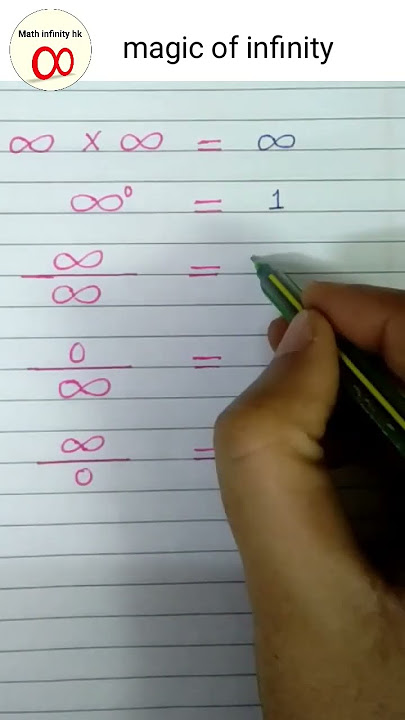 Math infinity hk
∞
magic of infinity
∞ × ∞ = ∞
∞⁰ = 1
∞/∞ =
0/∞ =
∞/0 =